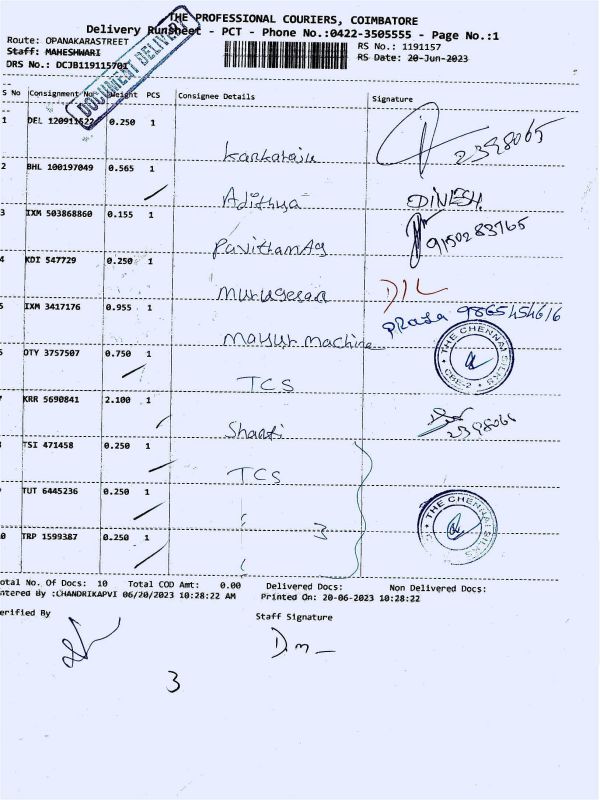 THE PROFESSIONAL COURIERS, COIMBATORE
Delivery Runsheet - PCT - Phone No.:0422-3505555 - Page No.:1
Route: OPANAKARASTREET
RS No.: 1191157
Staff: MAHESHWARI
RS Date: 20-Jun-2023
DRS No.: DCJB119115701
DOCUMENT DELIVERY
S No Consignment No Weight PCS Consignee Details Signature
1 DEL 120911622 0.250 1
2398065
2 BHL 100197049 0.565 1
Adithya DINESH
3 IXM 503868860 0.155 1
9150283765
4 KDI 547729 0.250 1
Murugesan D/L
5 IXM 3417176 0.955 1
9865454616
Mayur machine
6 OTY 3757507 0.750 1
THE CHENNAI SILKS CBE-2
TCS
7 KRR 5690841 2.100 1
Shanti 2398065
8 TSI 471458 0.250 1
TCS
9 TUT 6445236 0.250 1
THE CHENNAI SILKS
3
10 TRP 1599387 0.250 1
otal No. Of Docs: 10 Total COD Amt: 0.00 Delivered Docs: Non Delivered Docs:
ntered By :CHANDRIKAPVI 06/20/2023 10:28:22 AM Printed On: 20-06-2023 10:28:22
erified By
Staff Signature
3